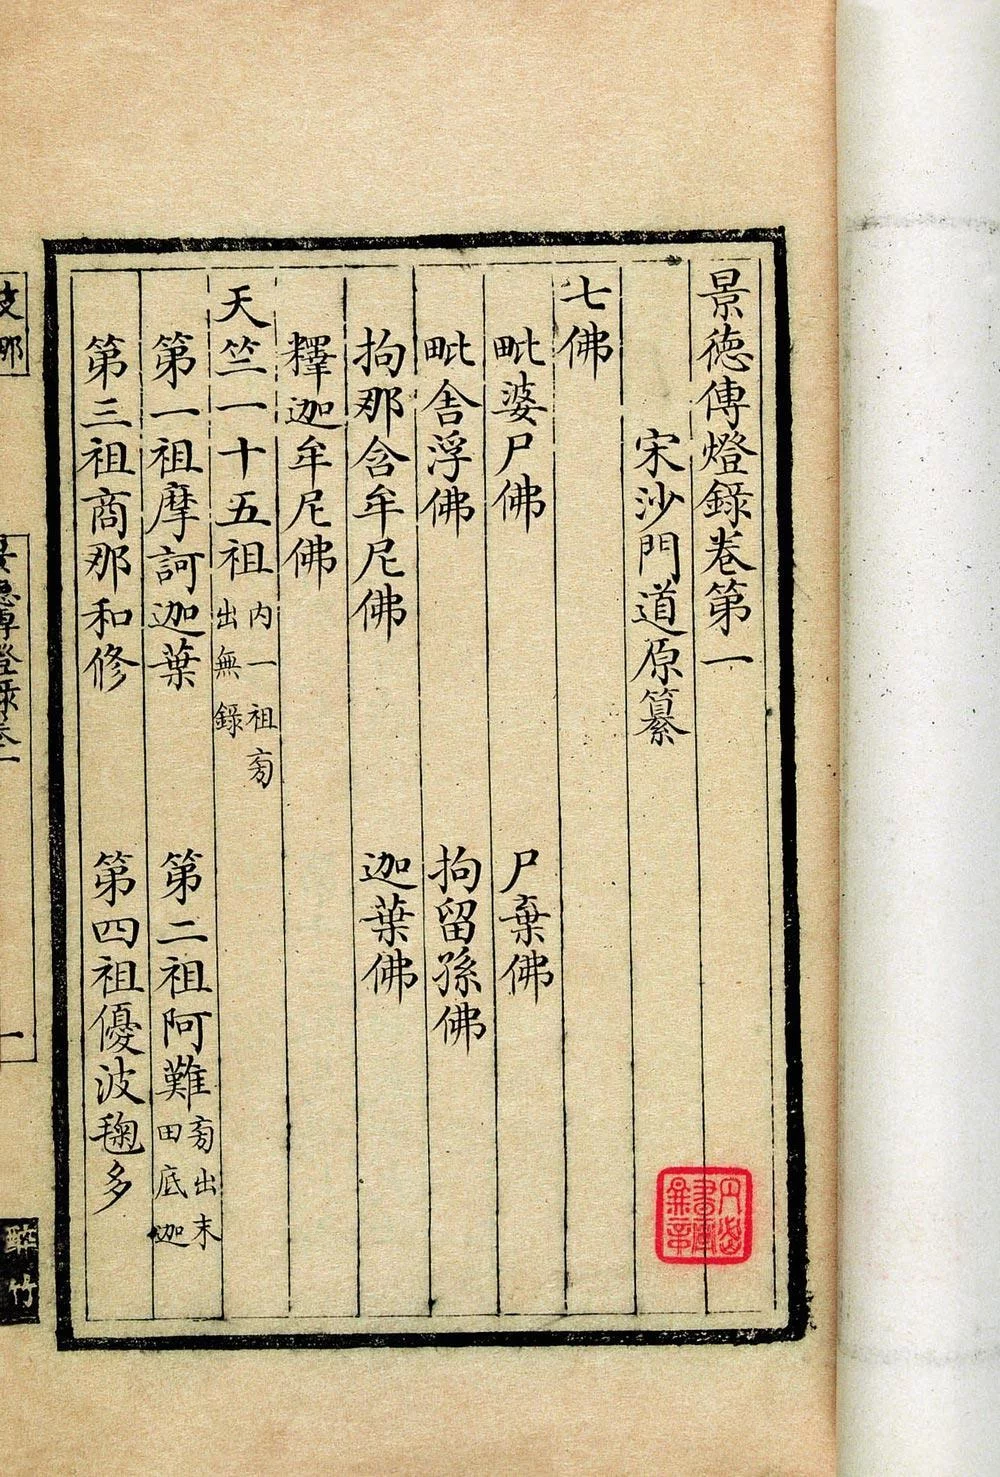 景德傳燈錄卷第一
宋沙門道原纂
七佛
毗婆尸佛 尸棄佛
毗舍浮佛 拘留孫佛
拘那含牟尼佛 迦葉佛
釋迦牟尼佛
天竺一十五祖 內一祖旁出無錄
第一祖摩訶迦葉 第二祖阿難 旁出末田底迦
第三祖商那和修 第四祖優波毱多
支那
景德傳燈錄卷一
一